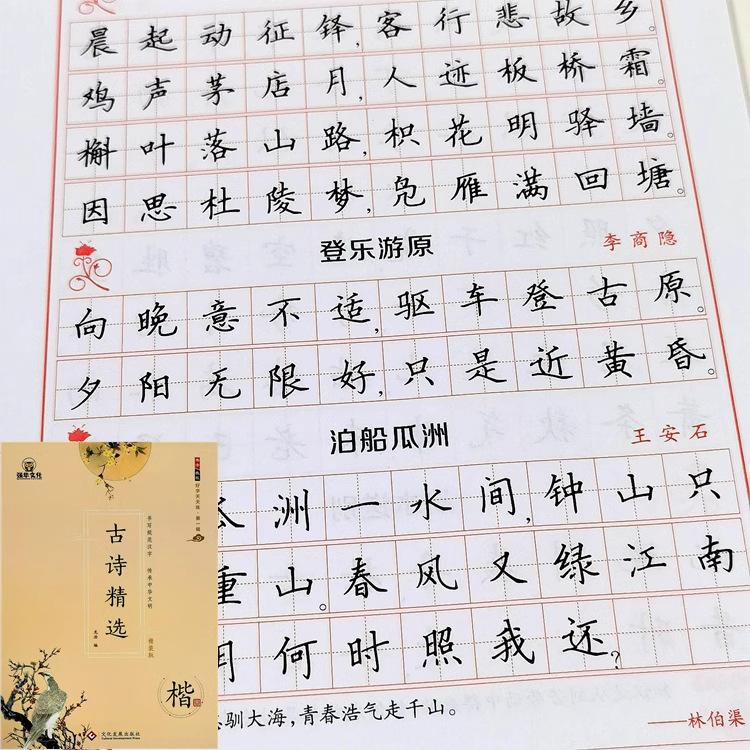 晨起动征铎,客行悲故乡。
鸡声茅店月,人迹板桥霜。
槲叶落山路,枳花明驿墙。
因思杜陵梦,凫雁满回塘。
登乐游原 李商隐
向晚意不适,驱车登古原。
夕阳无限好,只是近黄昏。
泊船瓜洲 王安石
瓜洲一水间,钟山只
重山。春风又绿江南
月何时照我还?
驯大海,青春浩气走千山。
——林伯渠
强华文化
古诗精选
书写规范汉字 传承中华文明
楷
文化发展出版社
Cultural Development Press